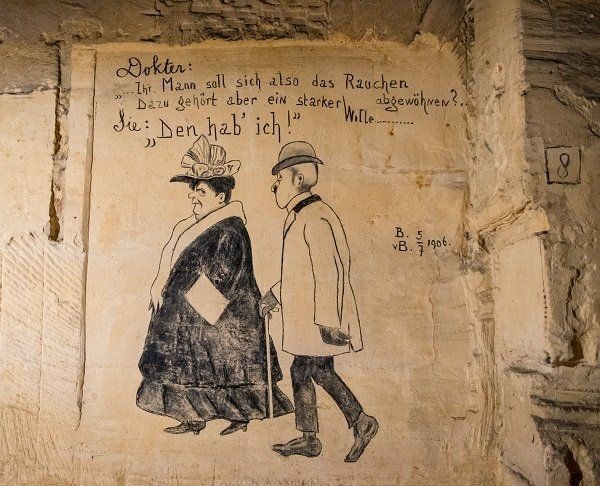 Dokter:
"....Ihr Mann soll sich also das Rauchen abgewöhnen?..
Dazu gehört aber ein starker Wille............
Sie: "Den hab' ich!"
B. 5/7 1906.
vB.
8